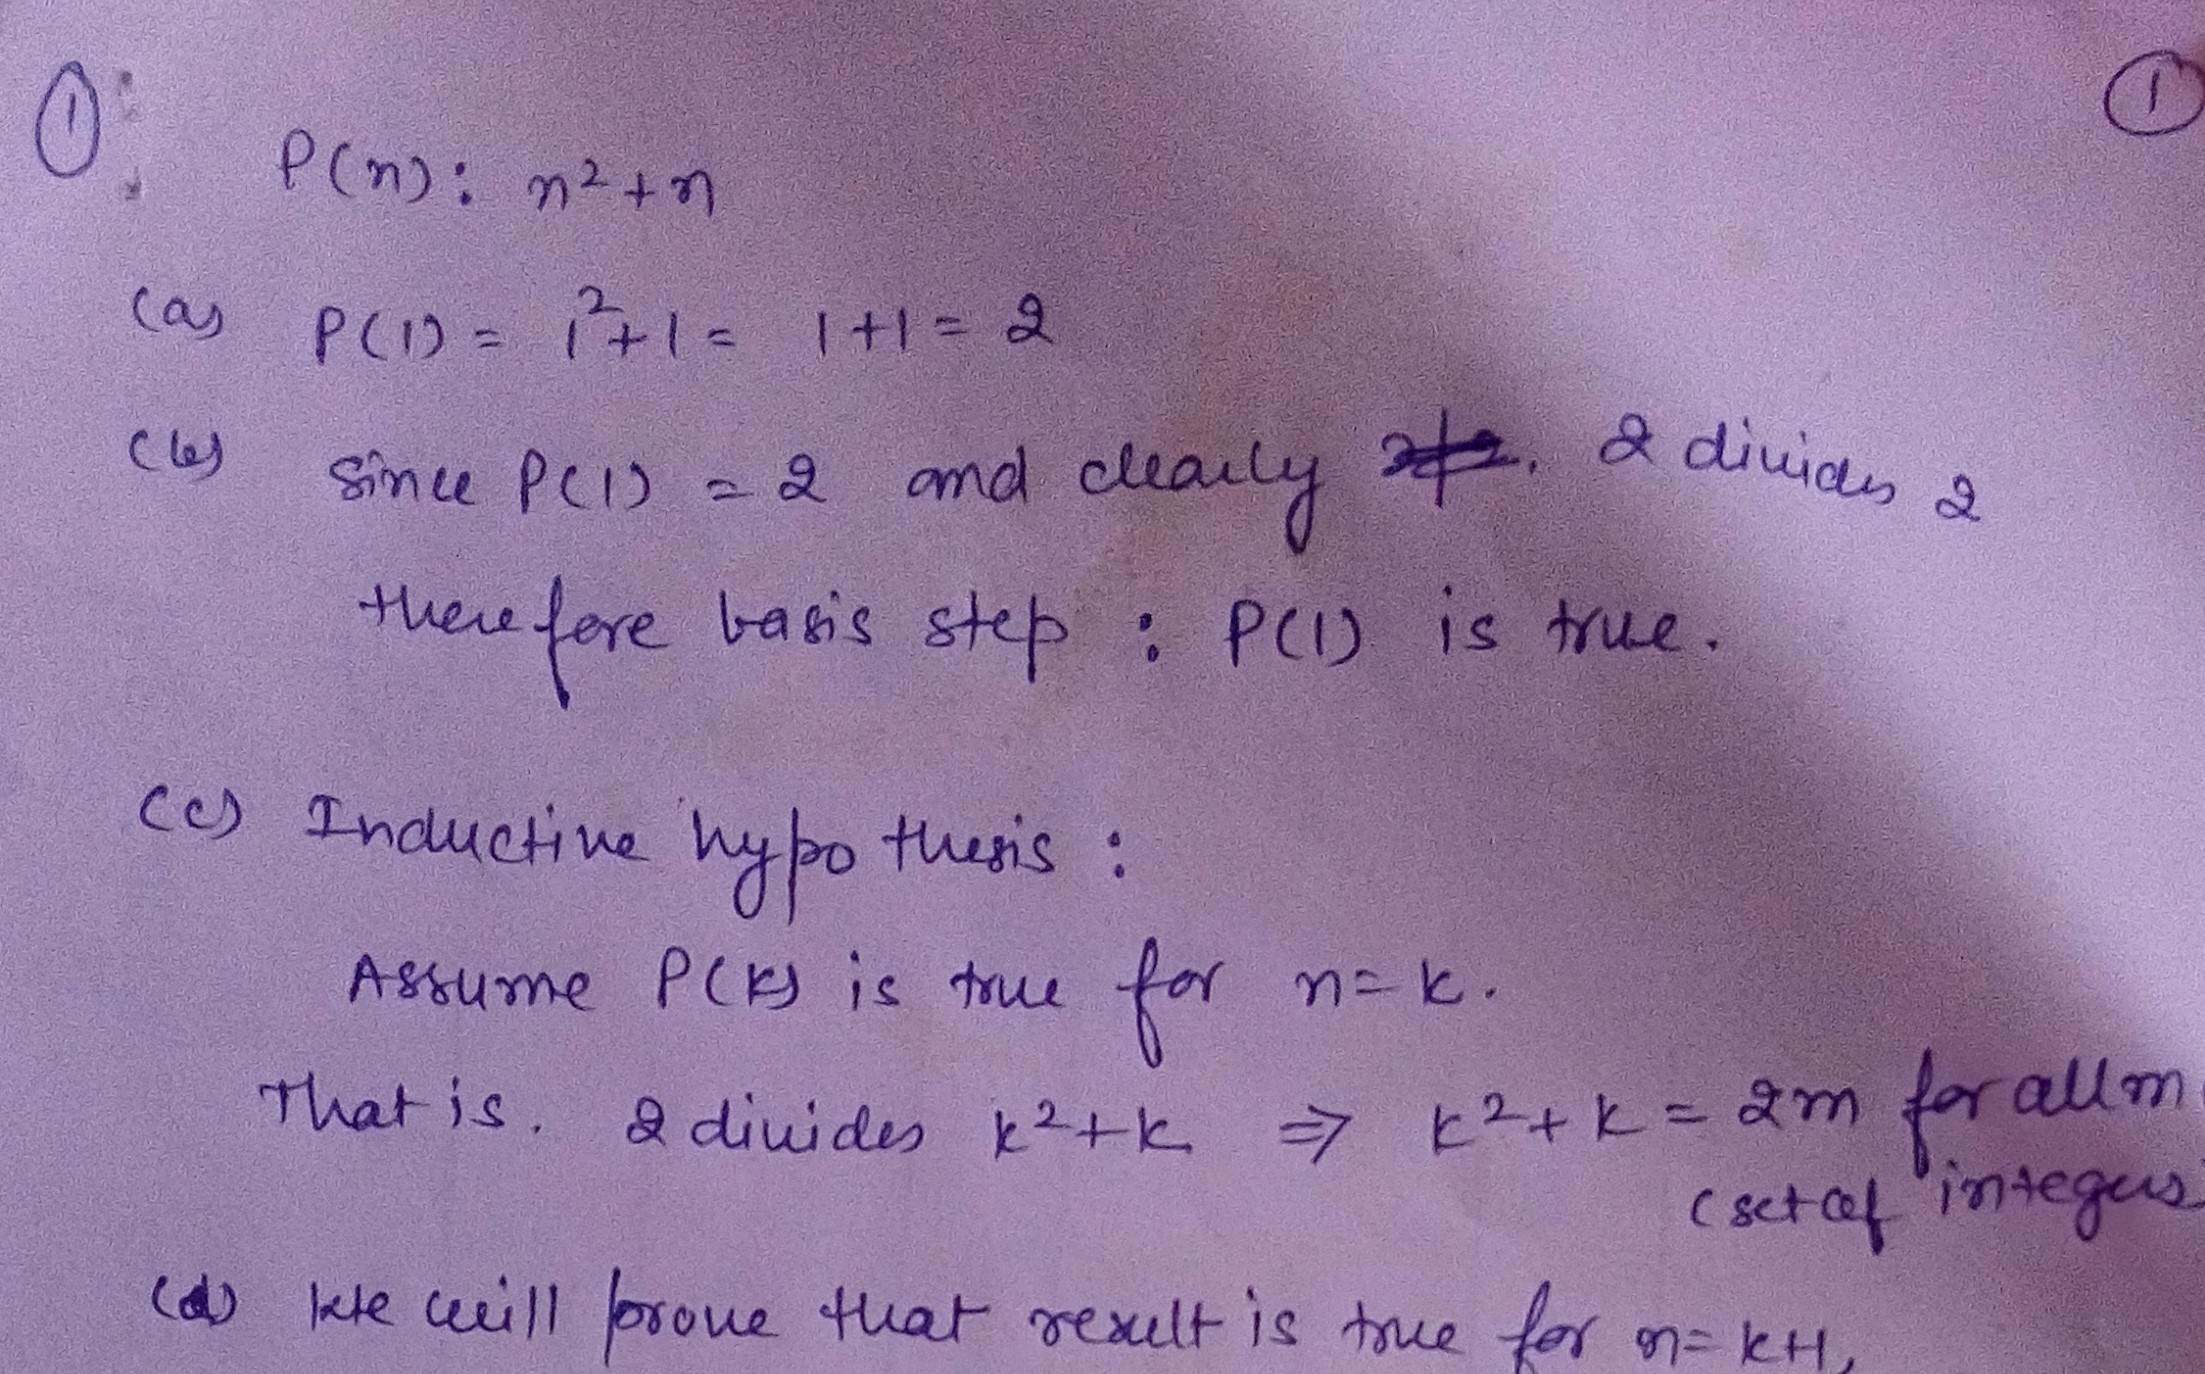 ① ①
P(n): n²+n
(a) P(1) = 1²+1 = 1+1 = 2
(b) since P(1) = 2 and clearly 2 divides 2
therefore basis step : P(1) is true.
(c) Inductive hypothesis :
Assume P(k) is true for n=k.
That is. 2 divides k²+k ⇒ k²+k = 2m for all m
(set of integers
(d) We will prove that result is true for n=k+1,